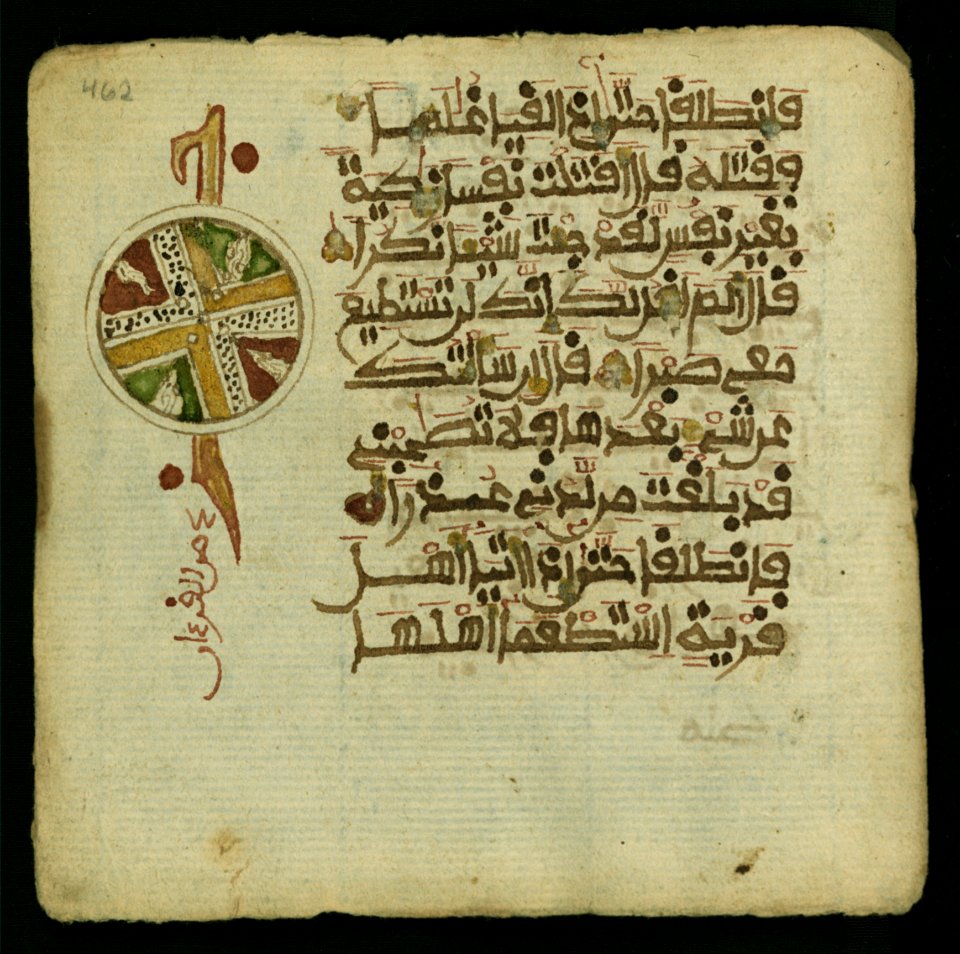 462
فانطلقا حتى إذا لقيا غلما
فقتله قال أقتلت نفسا زكية
بغير نفس لقد جئت شيئا نكرا
قال ألم أقل لك إنك لن تستطيع
معي صبرا قال إن سألتك
عن شيء بعدها فلا تصحبني
قد بلغت من لدني عذرا
فانطلقا حتى إذا أتيا أهل
قرية استطعما أهلها
القرءان